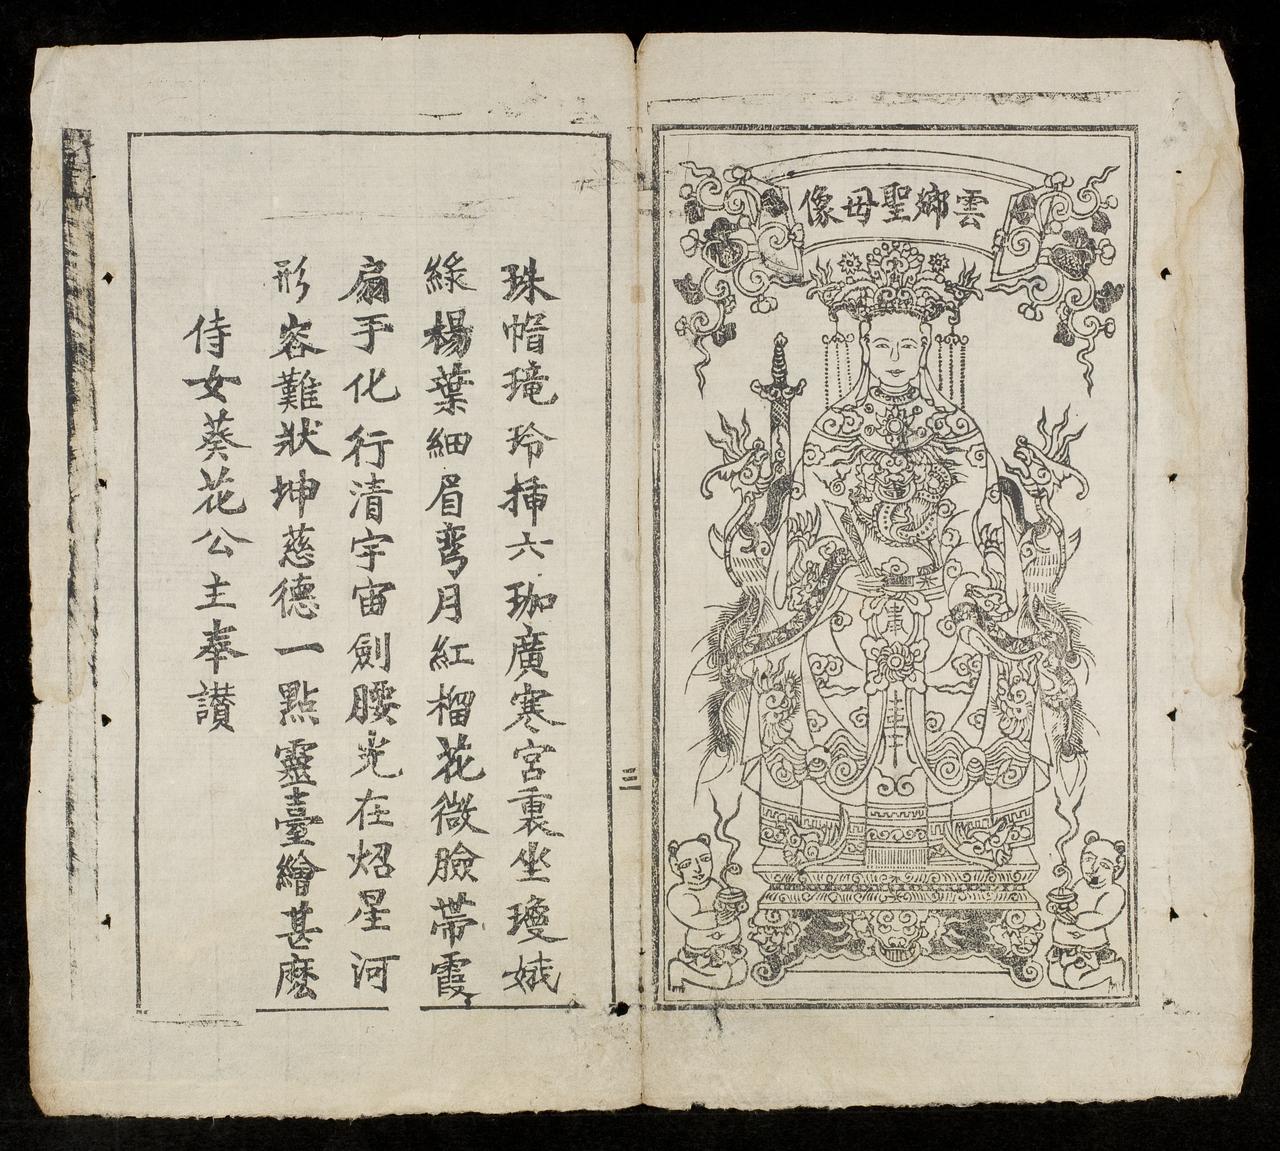 雲鄉聖母像
珠帽琦玲揷六珈廣寒宮裏坐瓊娥
緑楊葉細眉彎月紅榴花微臉帶霞
扇手化行清宇宙劍腰光在炤星河
形容難狀坤慈德一點靈臺繪甚麽
侍女葵花公主奉讃
三